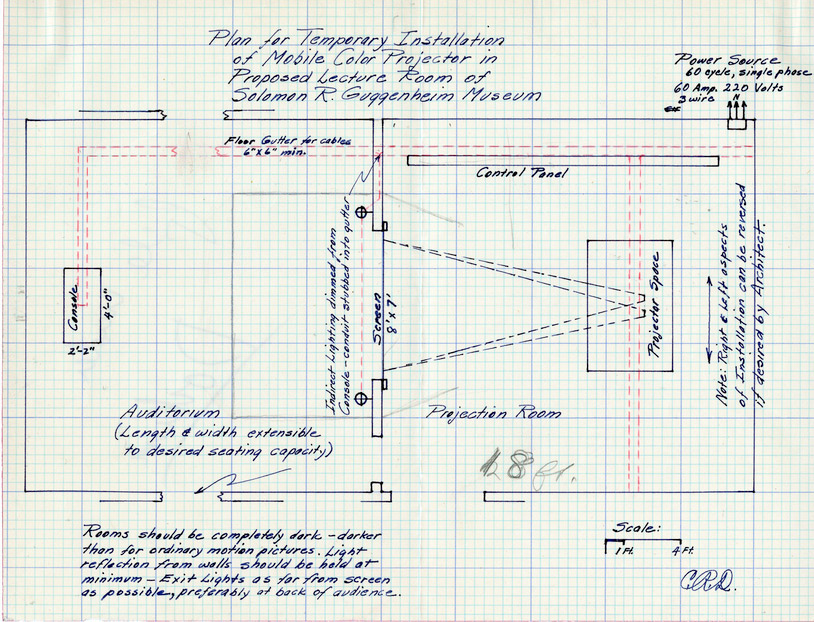 Plan for Temporary Installation
of Mobile Color Projector in
Proposed Lecture Room of
Solomon R. Guggenheim Museum
Power Source
60 cycle, single phase
60 Amp. 220 Volts
3 wire
N
Floor Gutter for cables
6"x6" min.
Control Panel
Console
4'-0"
2'-2"
Indirect Lighting dimmed from
Console - conduit stubbed into gutter
Screen
8'x7'
Projector Space
Note: Right & Left aspects
of Installation can be reversed
if desired by Architect.
Auditorium
(Length & width extensible
to desired seating capacity)
Projection Room
18 ft.
Rooms should be completely dark - darker
than for ordinary motion pictures. Light
reflection from walls should be held at
minimum - Exit Lights as far from screen
as possible, preferably at back of audience.
Scale:
1 Ft. 4 Ft.
C.R.D.